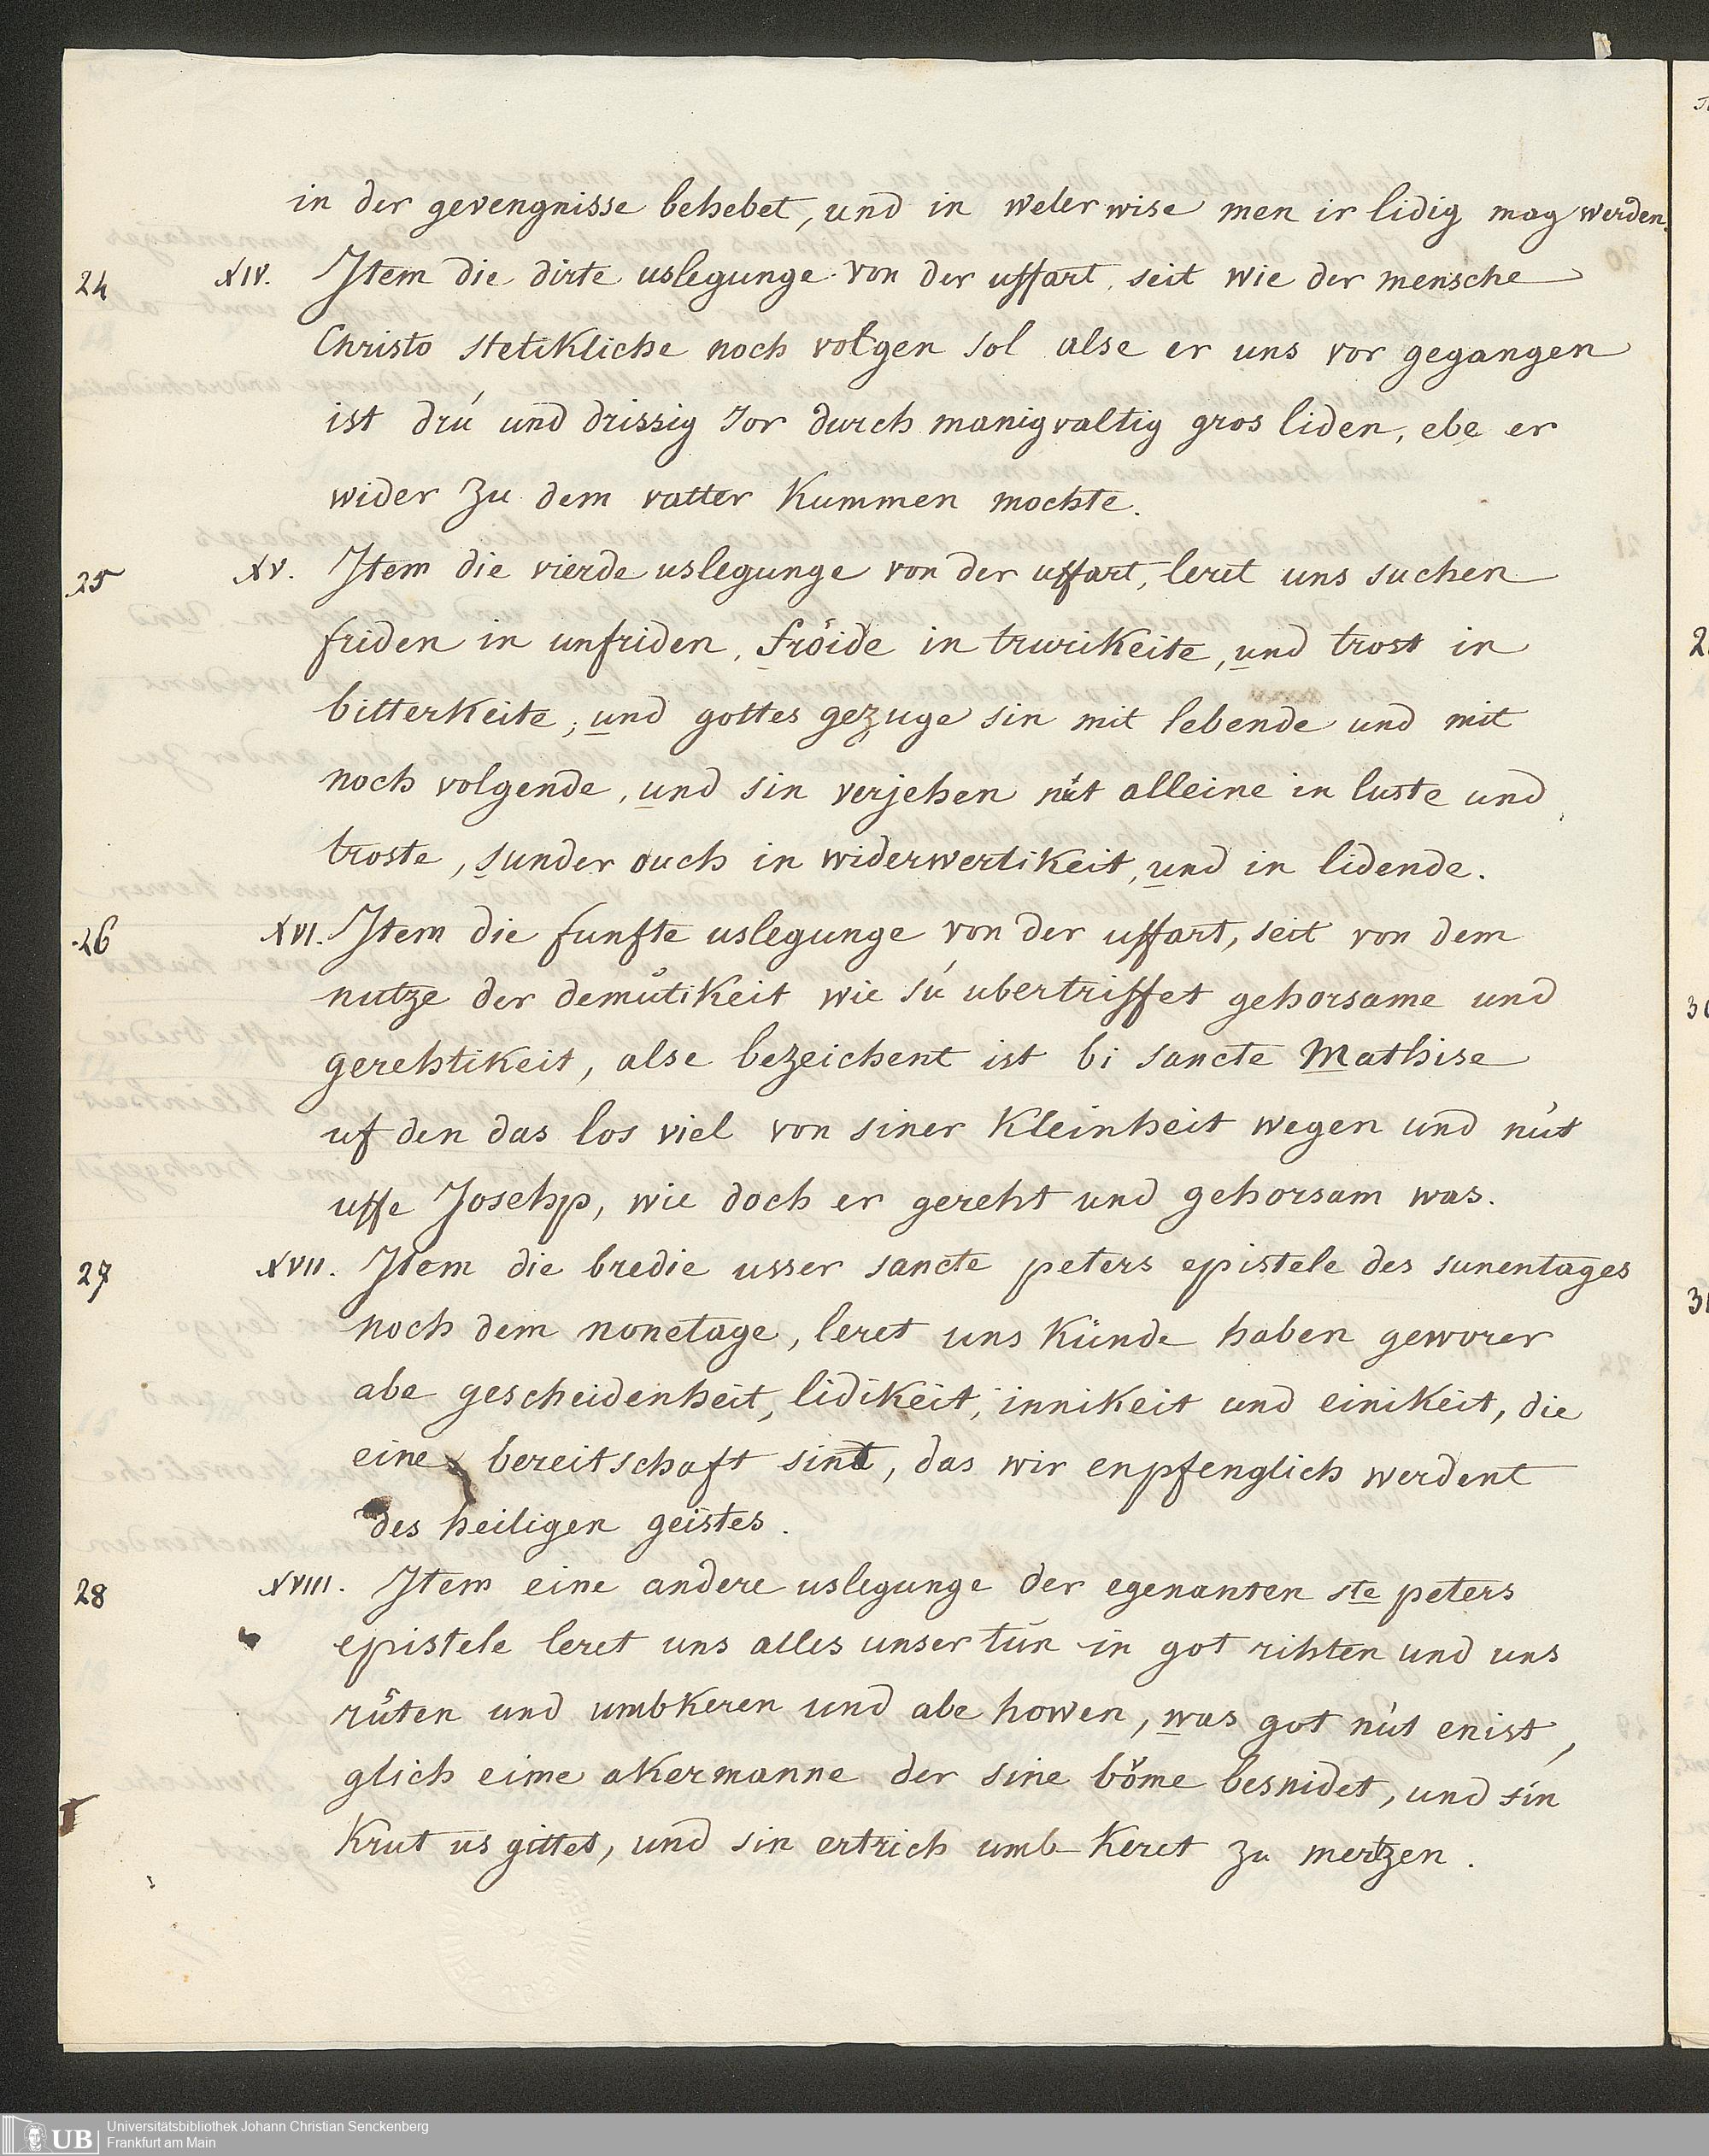 in der gevengnisse behebet, und in weler wise men ir lidig mag werden.
24 XIV. Item die dirte uslegunge von der uffart, seit wie der mensche
Christo stetikliche noch volgen sol alse er uns vor gegangen
ist drú und drissig Jor durch manigvaltig gros liden, ebe er
wider zu dem vatter kummen mochte.
25 XV. Item die vierde uslegunge von der uffart, leret uns suchen
friden in unfriden, fröide in trurikeite, und trost in
bitterkeite, und gottes gezuge sin mit lebende und mit
noch volgende, und sin verjehen nút alleine in luste und
troste, sunder ouch in widerwertikeit, und in lidende.
26 XVI. Item die funfte uslegunge von der uffart, seit von dem
nutze der demůtikeit wie sú ubertriffet gehorsame und
gerehtikeit, alse bezeichent ist bi sancte Mathise
uf den das los viel von siner kleinheit wegen und nút
uffe Josehp, wie doch er gereht und gehorsam was.
27 XVII. Item die bredie usser sancte peters epistele des sunentages
noch dem nonetage, leret uns künde haben geworer
abe gescheidenheit, lidikeit, innikeit und einikeit, die
eine bereitschaft sint, das wir enpfenglich werdent
des heiligen geistes.
28 XVIII. Item eine andere uslegunge der egenanten ste peters
epistele leret uns alles unser tůn in got rihten und uns
růten und umbkeren und abe howen, was got nút enist,
glich eime akermanne der sine böme besnidet, und sin
krut us gittet, und sin ertrich umb-keret zu mertzen.
UB Universitätsbibliothek Johann Christian Senckenberg
Frankfurt am Main